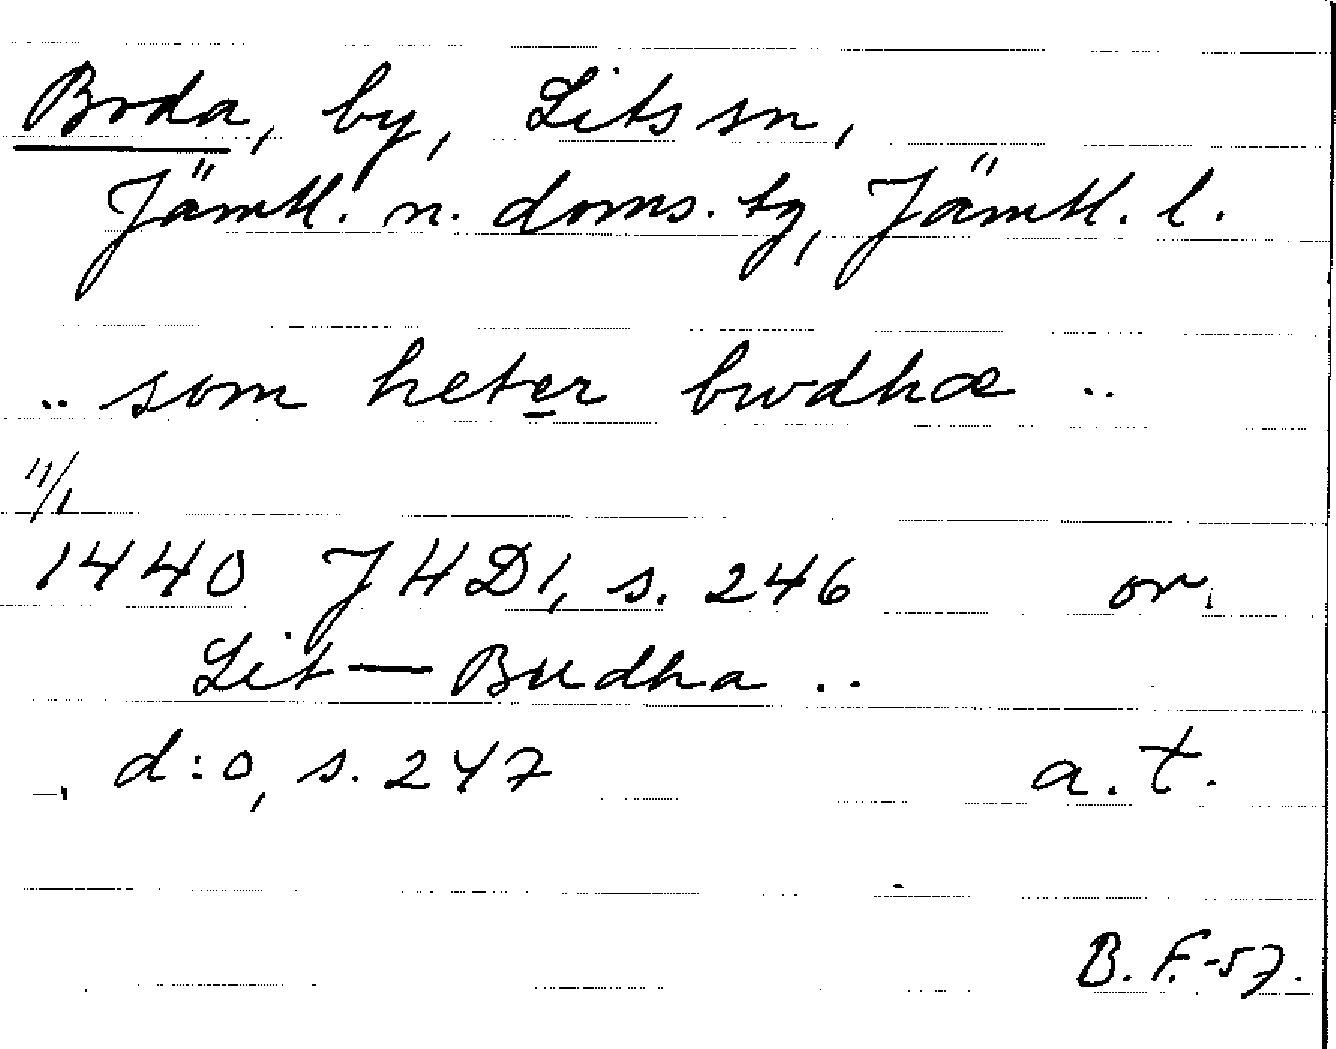 Boda, by, Lits sn,
Jämtl. n. doms. tg, Jämtl. l.
.. som heter bwdhæ ..
11/1
1440 JHD1, s. 246 or.
Lit — Budha ..
–, d:o, s. 247 a.t.
B. F.-57.